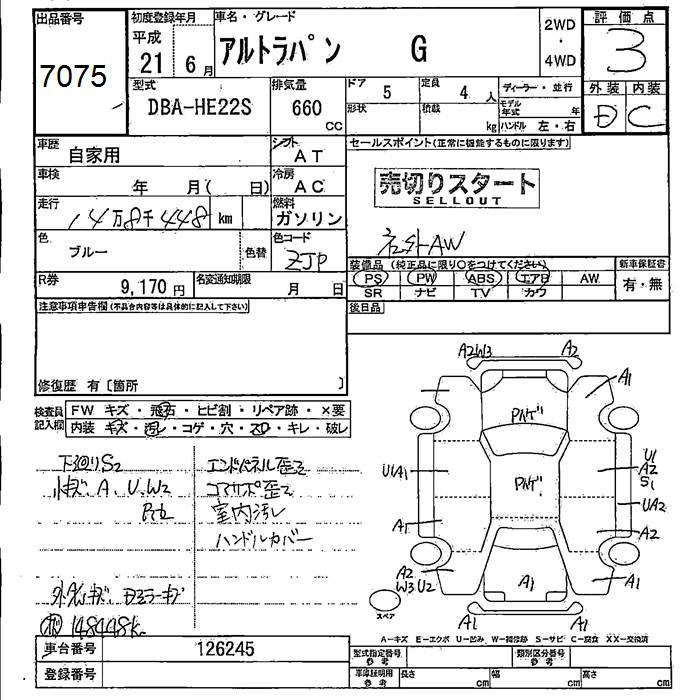 出品番号 初度登録年月 車名・グレード 2WD・4WD 評価点
7075 平成 21 6月 アルトラパン G 3
型式 排気量 ドア 5 定員 4人 ディーラー・並行 外装 内装
DBA-HE22S 660 CC 形状 積載 kg モデル年式 年 ハンドル 左・右 D C
車歴 自家用 シフト AT セールスポイント(正常に機能するものに限ります)
車検 年 月( 日) 冷房 AC 売切りスタート
SELLOUT
走行 14万8千448 km 燃料 ガソリン
色 ブルー 色替 色コード ZJP 社外AW
装備品 (純正品に限り○をつけてください) 新車保証書
R券 9,170円 名変通知期限 月 日 PS PW ABS エアB AW 有・無
SR ナビ TV カワ
注意事項申告欄(不具合内容等は具体的に記入して下さい) 後日品
修復歴 有〔箇所 〕
検査員記入欄 FW キズ・飛石・ヒビ割・リペア跡・×要
内装 キズ・汚レ・コゲ・穴・スレ・キレ・破レ
下廻りS2 エンドパネル歪2
小キズ、A、U、W2 コアサポ歪2
室内汚レ
ハンドルカバー
148448k
車台番号 126245
登録番号
A2W3 A2
A1 A1
Pルーフ
U1A1 U1 A2 S1
UA2
A1 A2
A2 W3U2 A1 A1
スペア A1 A1
A−キズ E−エクボ U−凹み W−補修跡 S−サビ C−腐食 XX−交換済
型式指定番号 参考 類別区分番号 参考
車庫証明用 参考 長さ cm 幅 cm 高さ cm